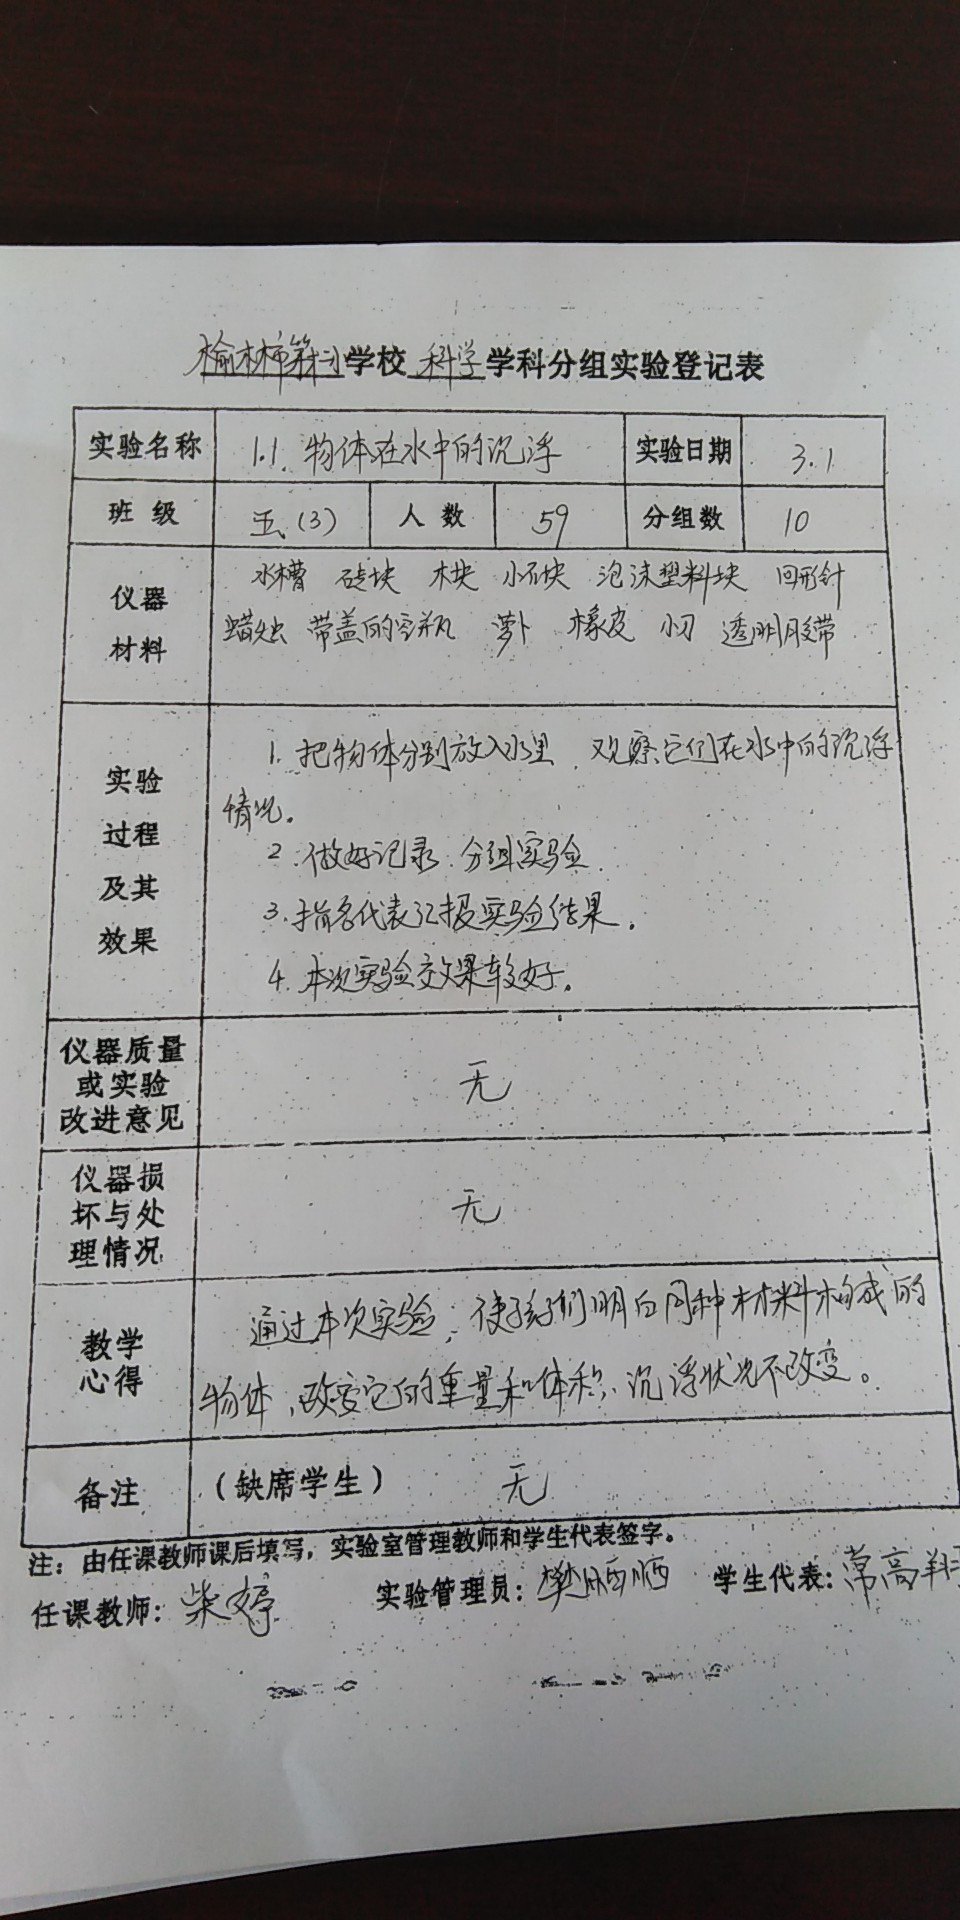 榆林市第 小学校 科学 学科分组实验登记表
实验名称 1.1. 物体在水中的沉浮 实验日期 3.1
班级 五(3) 人数 59 分组数 10
仪器材料
水槽 砖块 木块 小石块 泡沫塑料块 回形针
蜡烛 带盖的空瓶 萝卜 橡皮 小刀 透明胶带
实验过程及其效果
1.把物体分别放入水里,观察它们在水中的沉浮
情况。
2.做好记录.分组实验.
3.指名代表汇报实验结果。
4.本次实验效果较好。
仪器质量或实验改进意见 无
仪器损坏与处理情况 无
教学心得
通过本次实验,使孩子们明白同种材料构成的
物体,改变它们的重量和体积,沉浮状况不改变。
备注 (缺席学生) 无
注:由任课教师课后填写,实验室管理教师和学生代表签字。
任课教师:柴婷 实验管理员:樊 学生代表:常高翔